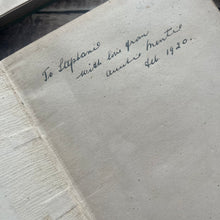 To Stephanie
with love from
Auntie
Feb 1920.